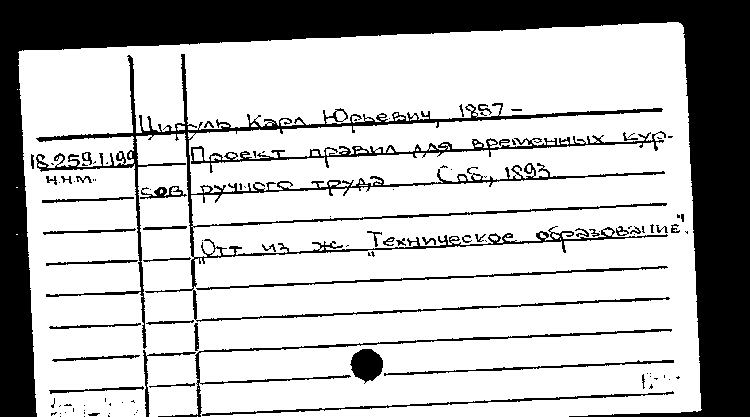 Цируль, Карл Юрьевич, 1857 –
18.259.1.199 Проект правил для временных кур-
н.н.м. сов ручного труда Спб., 1893
„Отт. из ж. „Техническое образование".